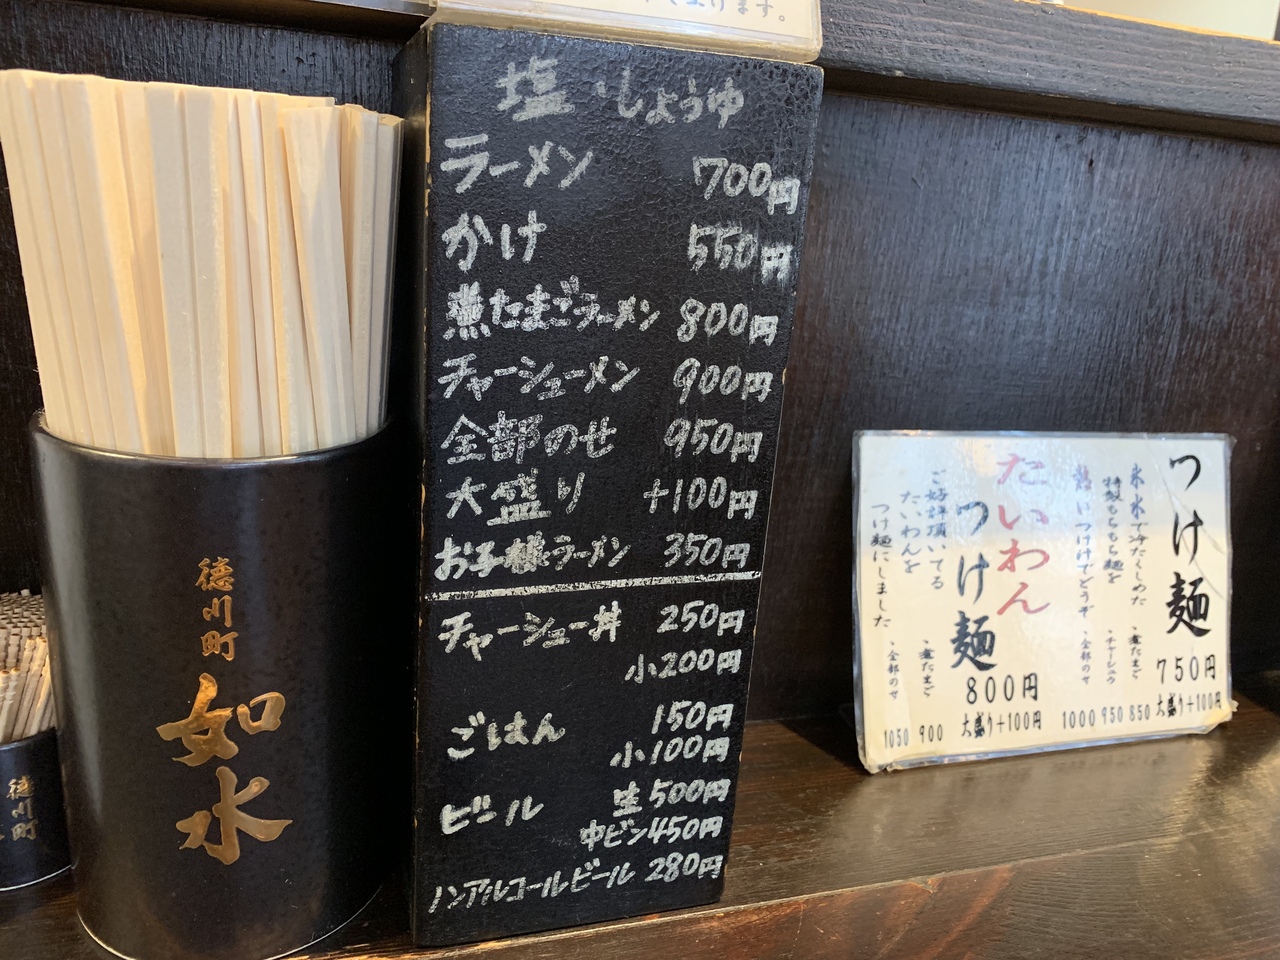 塩・しょうゆ
ラーメン 700円
かけ 550円
煮たまごラーメン 800円
チャーシューメン 900円
全部のせ 950円
大盛り +100円
お子様ラーメン 350円
チャーシュー丼 250円
小200円
ごはん 150円
小100円
ビール 生500円
中ビン450円
ノンアルコールビール 280円
徳川町
如水
徳川町
つけ麺
750円
大盛り+100円
氷水で冷たくしめた
特製もちもち麺を
熱いつけ汁でどうぞ
・煮たまご 850
・チャーシュウ 950
・全部のせ 1000
たいわん
つけ麺
800円
大盛り+100円
ご好評頂いてる
たいわんを
つけ麺にしました
・煮たまご 900
・全部のせ 1050